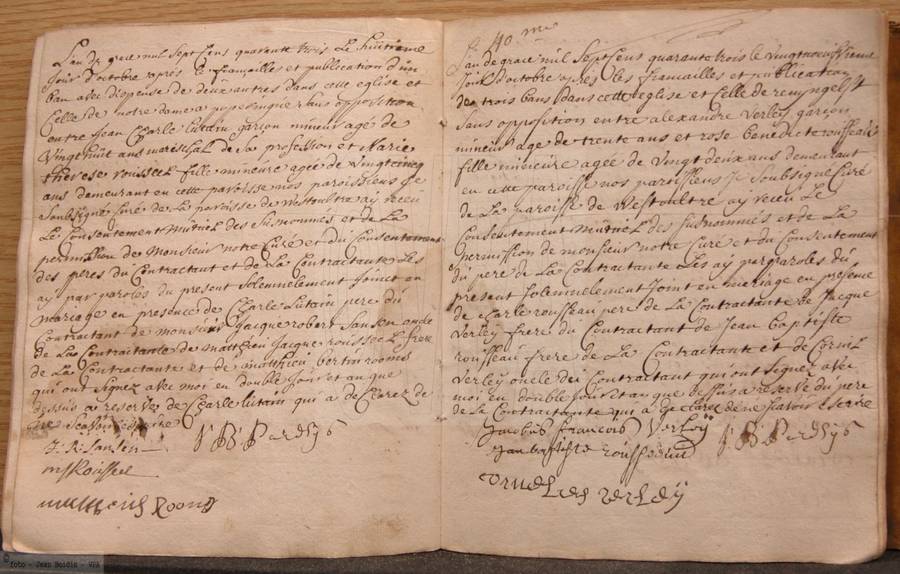 L'an de grace mil sept cens quarante trois le huitieme
jour d'octobre aprés les fiançailles et publication d'un
ban avec dispense de deux autres dans cette eglise et
celle de notre dame a poperingue sans opposition
entre jean Charle lutain garçon mineur agé de
vingthuit ans mareschal de sa profession et Marie
therese rousseel fille mineure agée de vingtcinq
ans demeurant en cette paroisse nos paroissiens je
soubsigné curé de la paroisse de westoultre ay receu
le consentement mutuel des susnommés et de la
permission de Monsieur notre Curé et du consentement
des peres du Contractant et de la Contractante les
ay par paroles du present solemnelement joinct en
mariage en presence de Charle lutain pere du
Contractant de monsieur Jacque robert Sansen oncle
de la Contractante de matthieu jacque roussel frere
de la Contractante et de matthieu bertin rooms
qui ont signez avec moi en double jour et an que
dessus a reserve de Charle lutain qui a declarez de
ne sçavoir escrire
J. R. Sansen
mJRoussel
Rooms
40 me
L'an de grace mil sept cens quarante trois le vingtneufvieme
jour d'octobre aprés les fiançailles et publication
de trois bans dans cette eglise et celle de renyngelst
sans opposition entre alexandre Verley garçon
mineur agé de trente ans et rose benedicte rousseau
fille mineure agée de vingt deux ans demeurant
en cette paroisse nos paroissiens je soubsigné curé
de la paroisse de westoultre ay receu le
Consentement mutuel des susnommés et de la
permission de monsieur notre Curé et du Consentement
du pere de la Contractante les ay par paroles du
present solemnelement joint en mariage en presence
de Charle rousseau pere de la Contractante de Jacque
Verley frere du Contractant de Jean baptiste
rousseau frere de la Contractante et de
Verley oncle du Contractant qui ont signez avec
moi en double jour et an que dessus a reserve du pere
de la Contractante qui a declarez de ne sçavoir escrire
Jacobus francois Verley
Jan baptiste rousseau
verley
©foto - Jean Boidin - VVA